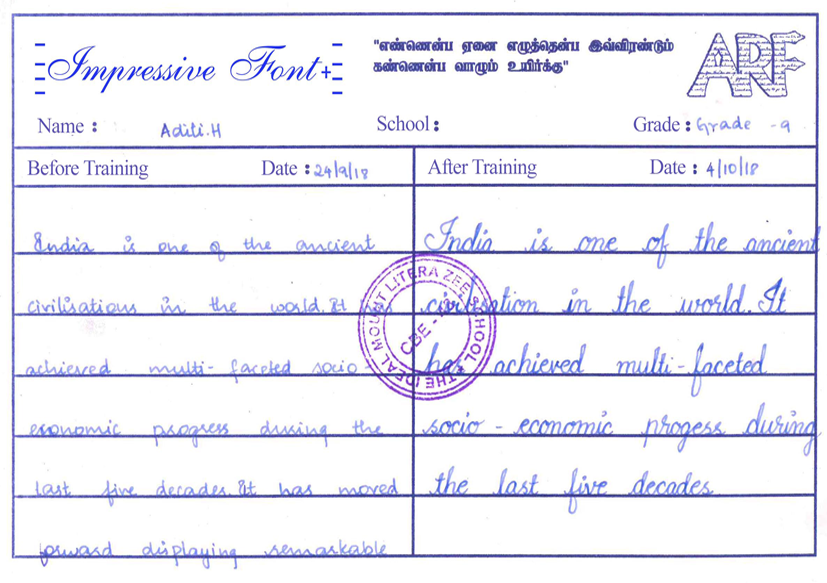 Impressive Font+
"எண்ணென்ப ஏனை எழுத்தென்ப இவ்விரண்டும்
கண்ணென்ப வாழும் உயிர்க்கு"
ARF
Name : Aditi.H
School :
Grade : Grade - 9
Before Training Date : 24/9/18
India is one of the ancient
civilisations in the world. It
achieved multi-faceted socio
economic progress during the
last five decades. It has moved
forward displaying remarkable
After Training Date : 4/10/18
India is one of the ancient
civilisation in the world. It
has achieved multi-faceted
socio - economic progess during
the last five decades
THE IDEAL MOUNT LITERA ZEE SCHOOL
CBE